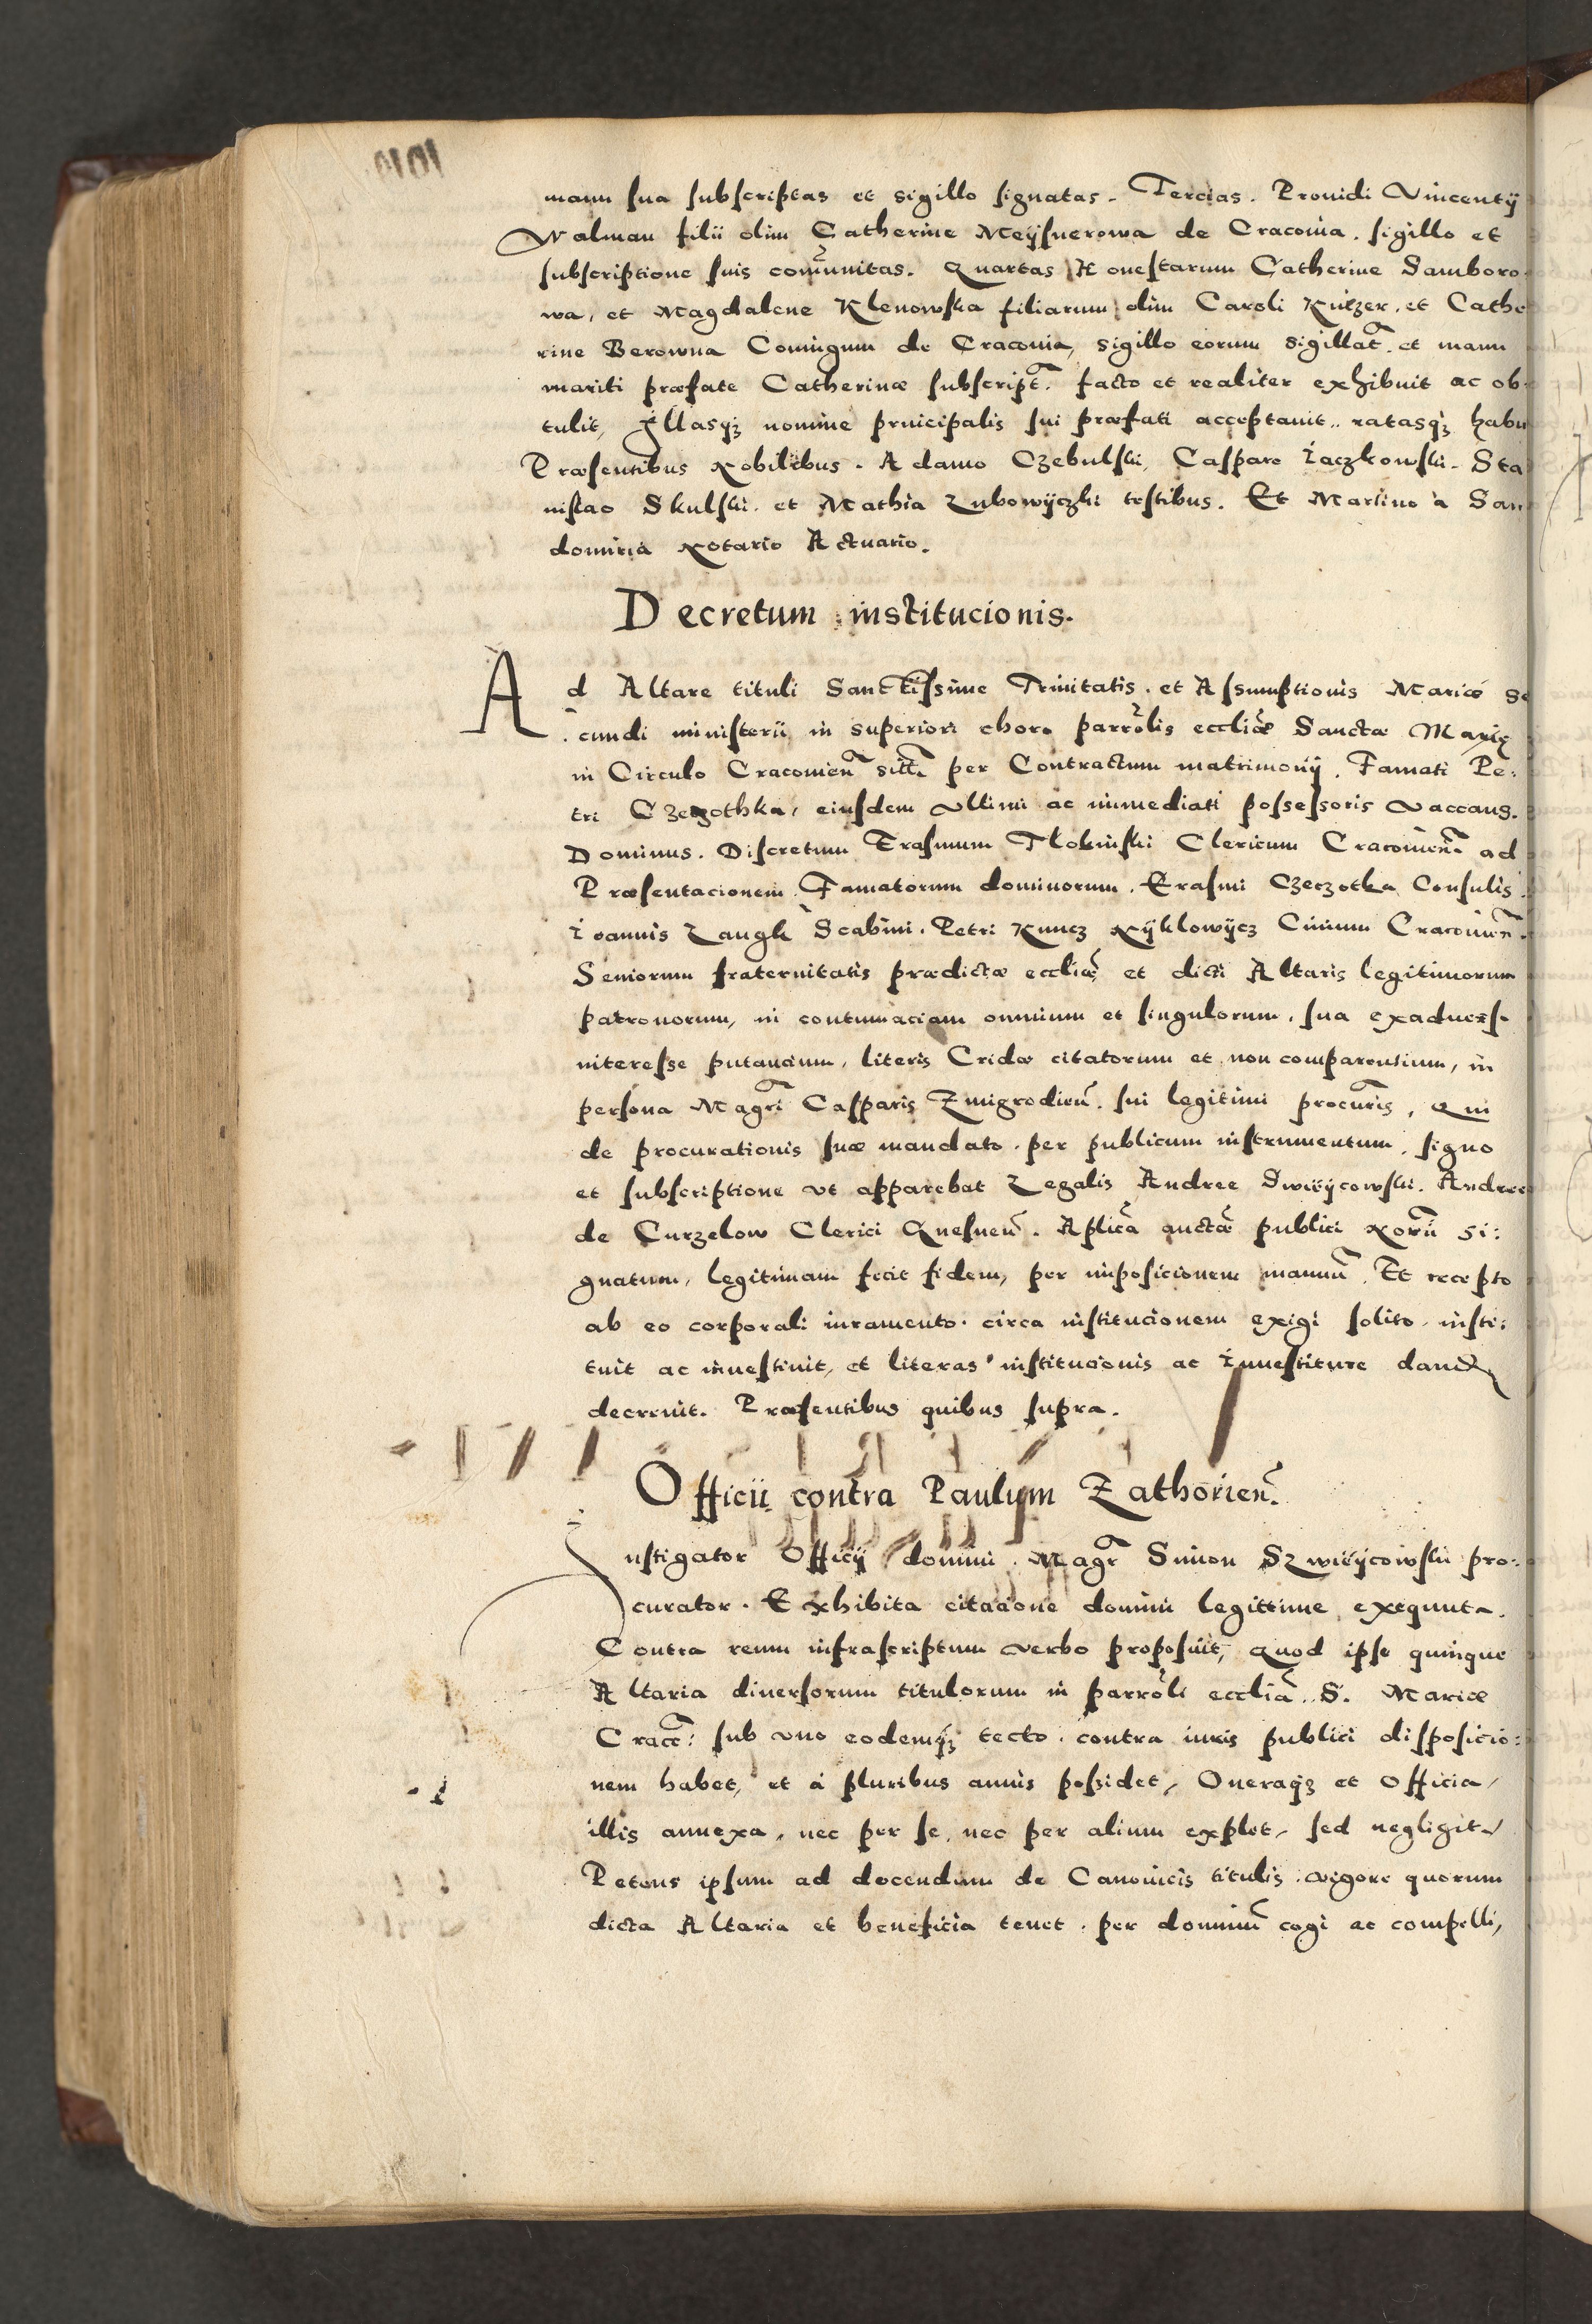 manu sua subscriptas et sigillo signatas. Tercias. Prouidi Vincentÿ
Walman filii olim Catherine Meÿsnerowa de Cracouia. sigillo et
subscriptione suis com̃unitas. Quartas Honestarum Catherine Samboro
wa, et Magdalene Klenowska filiarum olim Caroli et Cathe
rine Berowna Coniugum de Cracouia, sigillo eorum sigillat̃. et manu
mariti præfate Catherinæ subscript̃. facto et realiter exhibuit ac ob
tulit, Illasqꝫ nomine principalis sui præfati acceptauit.. ratasqꝫ habu
Præsentibus Nobilibus. Adamo Czebulski, Casparo Iaczkowski. Sta
nislao Skulski. et Mathia Lubowÿczki testibus. Et Martino à San
domiria Notario Actuario.
Decretum institucionis.
Ad Altare tituli Sanctissime Trinitatis. et Assumptionis Mariæ Se
cundi ministerii in superiori choro parrõlis eccliæ̃ Sanctæ Marię
in Circulo Cracouieñ sit̃ per Contractum matrimonÿ. Famati Pe:
tri Czeczothka, eiusdem vltimi ac immediati possessoris vaccans.
Dominus. Discretum Erasmum Tlokinski Clericum Cracouieñ ad
Præsentacionem Famatorum dominorum. Erasmi Czeczotka Consulis.
Ioannis Langk Scabini. Petri Kuncz Nÿklowÿcz Ciuium Cracouieñ.
Seniorum fraternitatis prædictæ eccliæ̃ et dicti Altaris legitimorum
patronorum, in contumaciam omnium et singulorum. sua exaduerso
interesse putancium, literis Cridæ citatorum et non comparentium, in
persona Magr̃i Casparis Zmigrodieñ. sui legitimi procur̃is, Qui
de procurationis suæ mandato. per publicum instrumentum, signo
et subscriptione vt apparebat Legalis Andree Andree
de Curzelow Clerici Gnesneñ. Aplicã auctẽ publici Norii̇̃ si:
gnatum, legitimam fecit fidem, per imposicionem manuũ. Et recepto
ab eo corporali iuramento. circa institucionem exigi solito. insti:
tuit ac inuestiuit, et literas institucionis ac Inuestiture dandas
decreuit. Præsentibus quibus supra.
Officii contra Paulum Zathorieñ.
Instigator Officÿ domini. Magr̃ Simon pro:
curator. Exhibita citacione domini legittime exequuta.
Contra reum infrascriptum verbo proposuit, Quod ipse quinque
Altaria diuersorum titulorum in parrõli eccliã. S. Mariæ
Cracc̃: sub vno eodemqꝫ tecto. contra iuris publici disposicio:
nem habet, et à pluribus annis possidet, Oneraqꝫ et Officia,
illis annexa, nec per se, nec per alium explet, sed negligit,
Petens ipsum ad docendum de Canonicis titulis. vigore quorum
dicta Altaria et beneficia tenet. per dominũ cogi ac compelli,